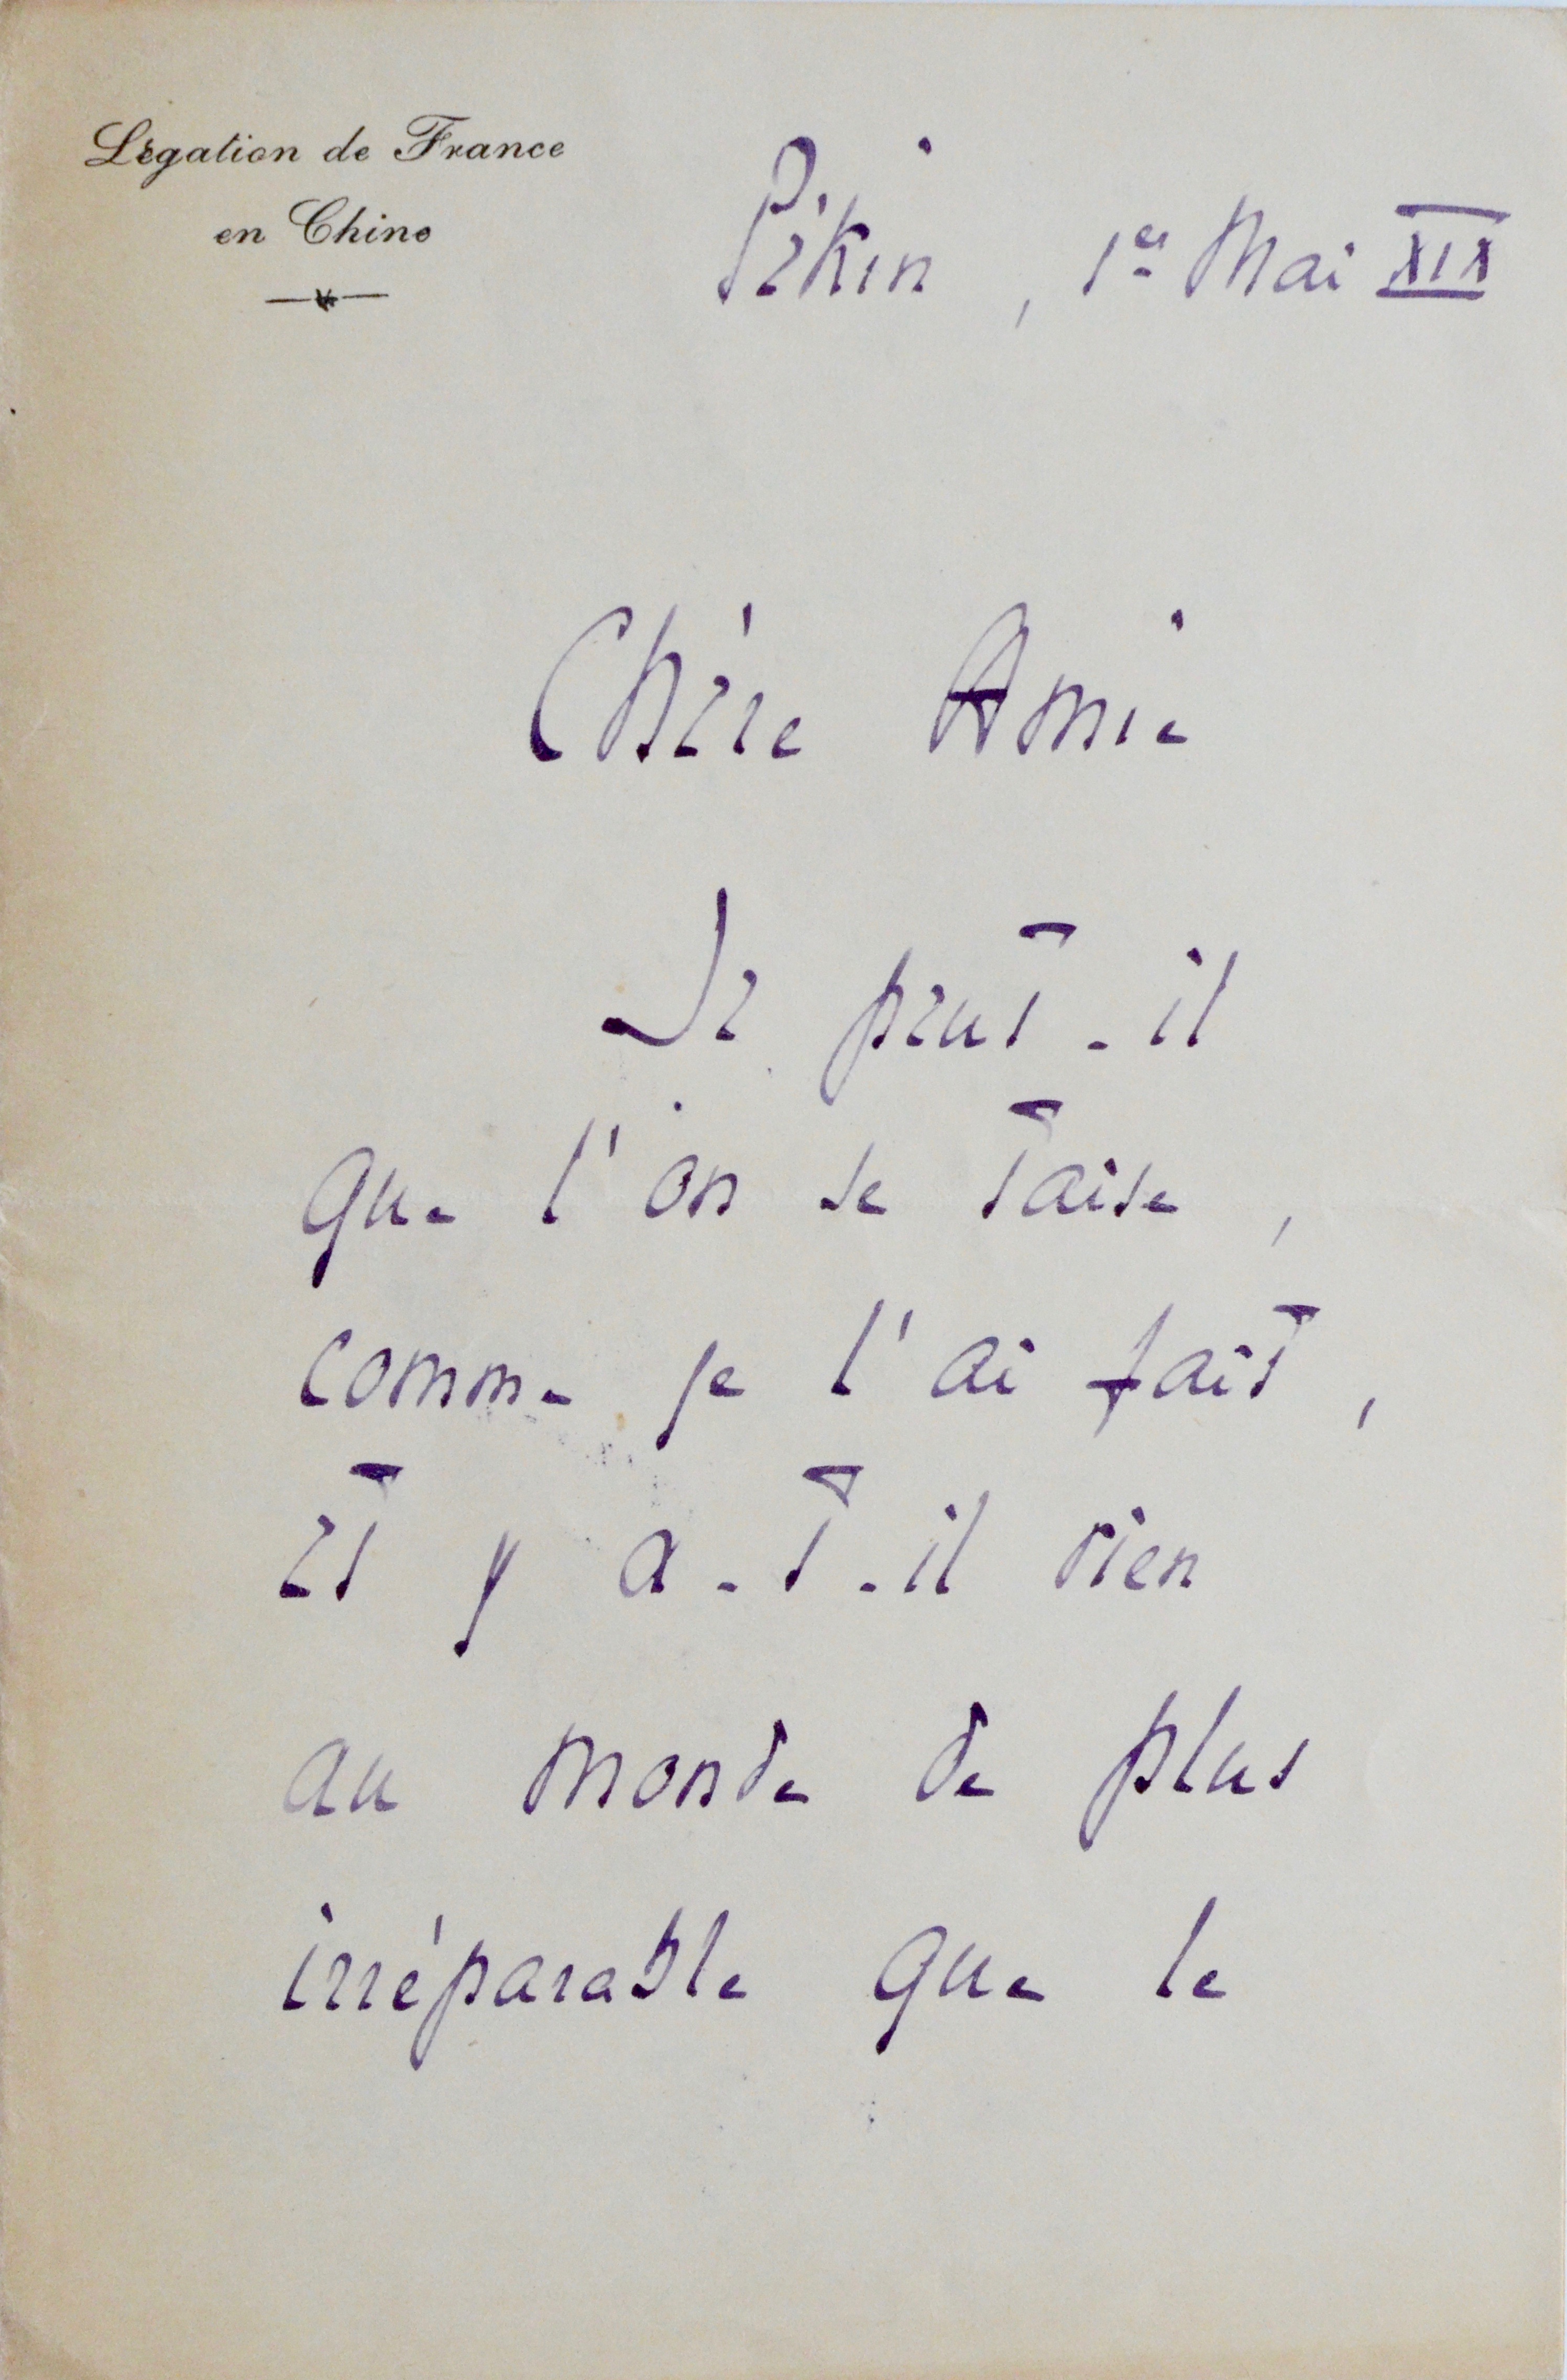 Légation de France
en Chine
Pékin, 1er Mai XIX
Chère Amie
Se peut-il
que l'on se taise,
comme je l'ai fait,
et y a-t-il rien
au monde de plus
irréparable que le